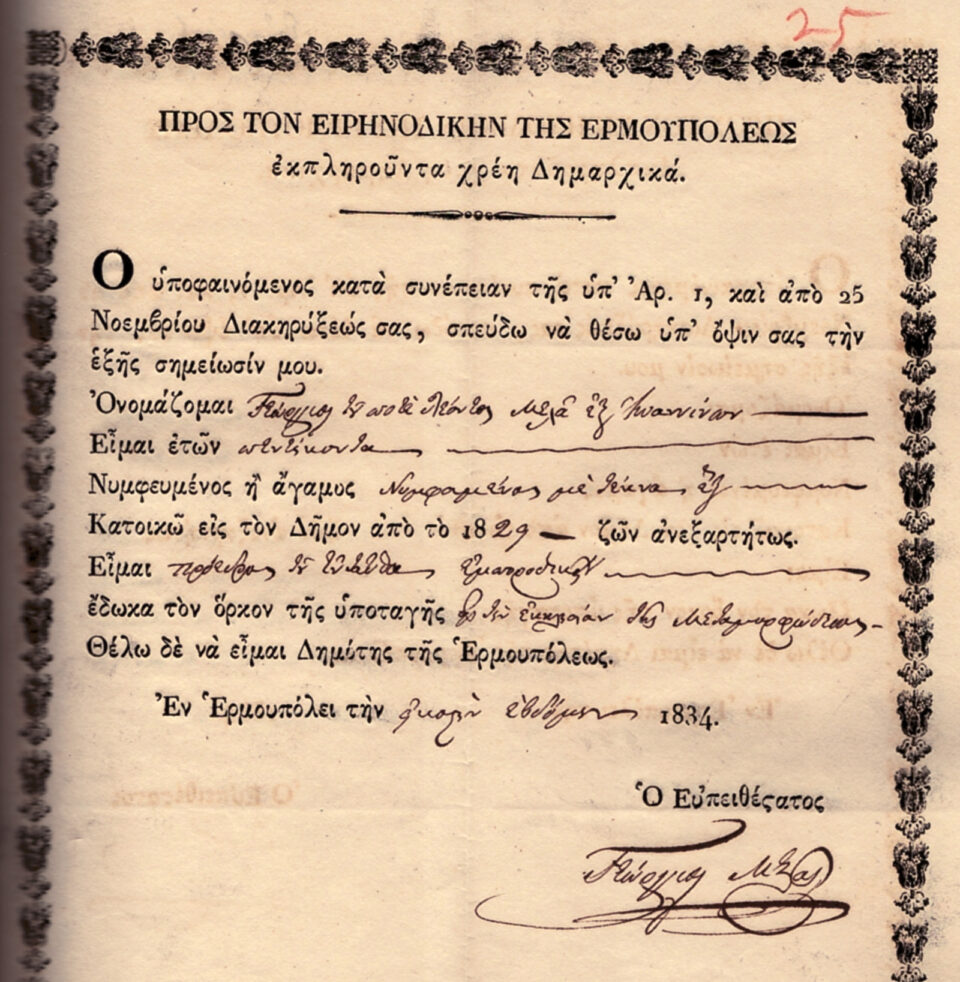 25
ΠΡΟΣ ΤΟΝ ΕΙΡΗΝΟΔΙΚΗΝ ΤΗΣ ΕΡΜΟΥΠΟΛΕΩΣ
ἐκπληροῦντα χρέη Δημαρχικά.
Ο ὑποφαινόμενος κατὰ συνέπειαν τῆς ὑπ' Ἀρ. 1, καὶ ἀπὸ 25
Νοεμβρίου Διακηρύξεώς σας, σπεύδω νὰ θέσω ὑπ' ὄψιν σας τὴν
ἑξῆς σημείωσίν μου.
Ὀνομάζομαι Γεώργιος τοῦ ποτὲ Λέοντος Μελᾶ ἐξ Ἰωαννίνων
Εἶμαι ἐτῶν πεντήκοντα
Νυμφευμένος ἢ ἄγαμος Νυμφευμένος μὲ τέκνα ἓξ
Κατοικῶ εἰς τὸν Δῆμον ἀπὸ τὸ 1829 — ζῶν ἀνεξαρτήτως.
Εἶμαι πρόεδρος τοῦ ἐνταῦθα Ἐμποροδικείου
ἔδωκα τὸν ὅρκον τῆς ὑποταγῆς εἰς τὴν ἐκκλησίαν τῆς Μεταμορφώσεως
Θέλω δὲ νὰ εἶμαι Δημότης τῆς Ἑρμουπόλεως.
Ἐν Ἑρμουπόλει τὴν εἰκοστὴν ἑβδόμην 1834.
Ὁ Εὐπειθέςατος
Γεώργιος Μελᾶς